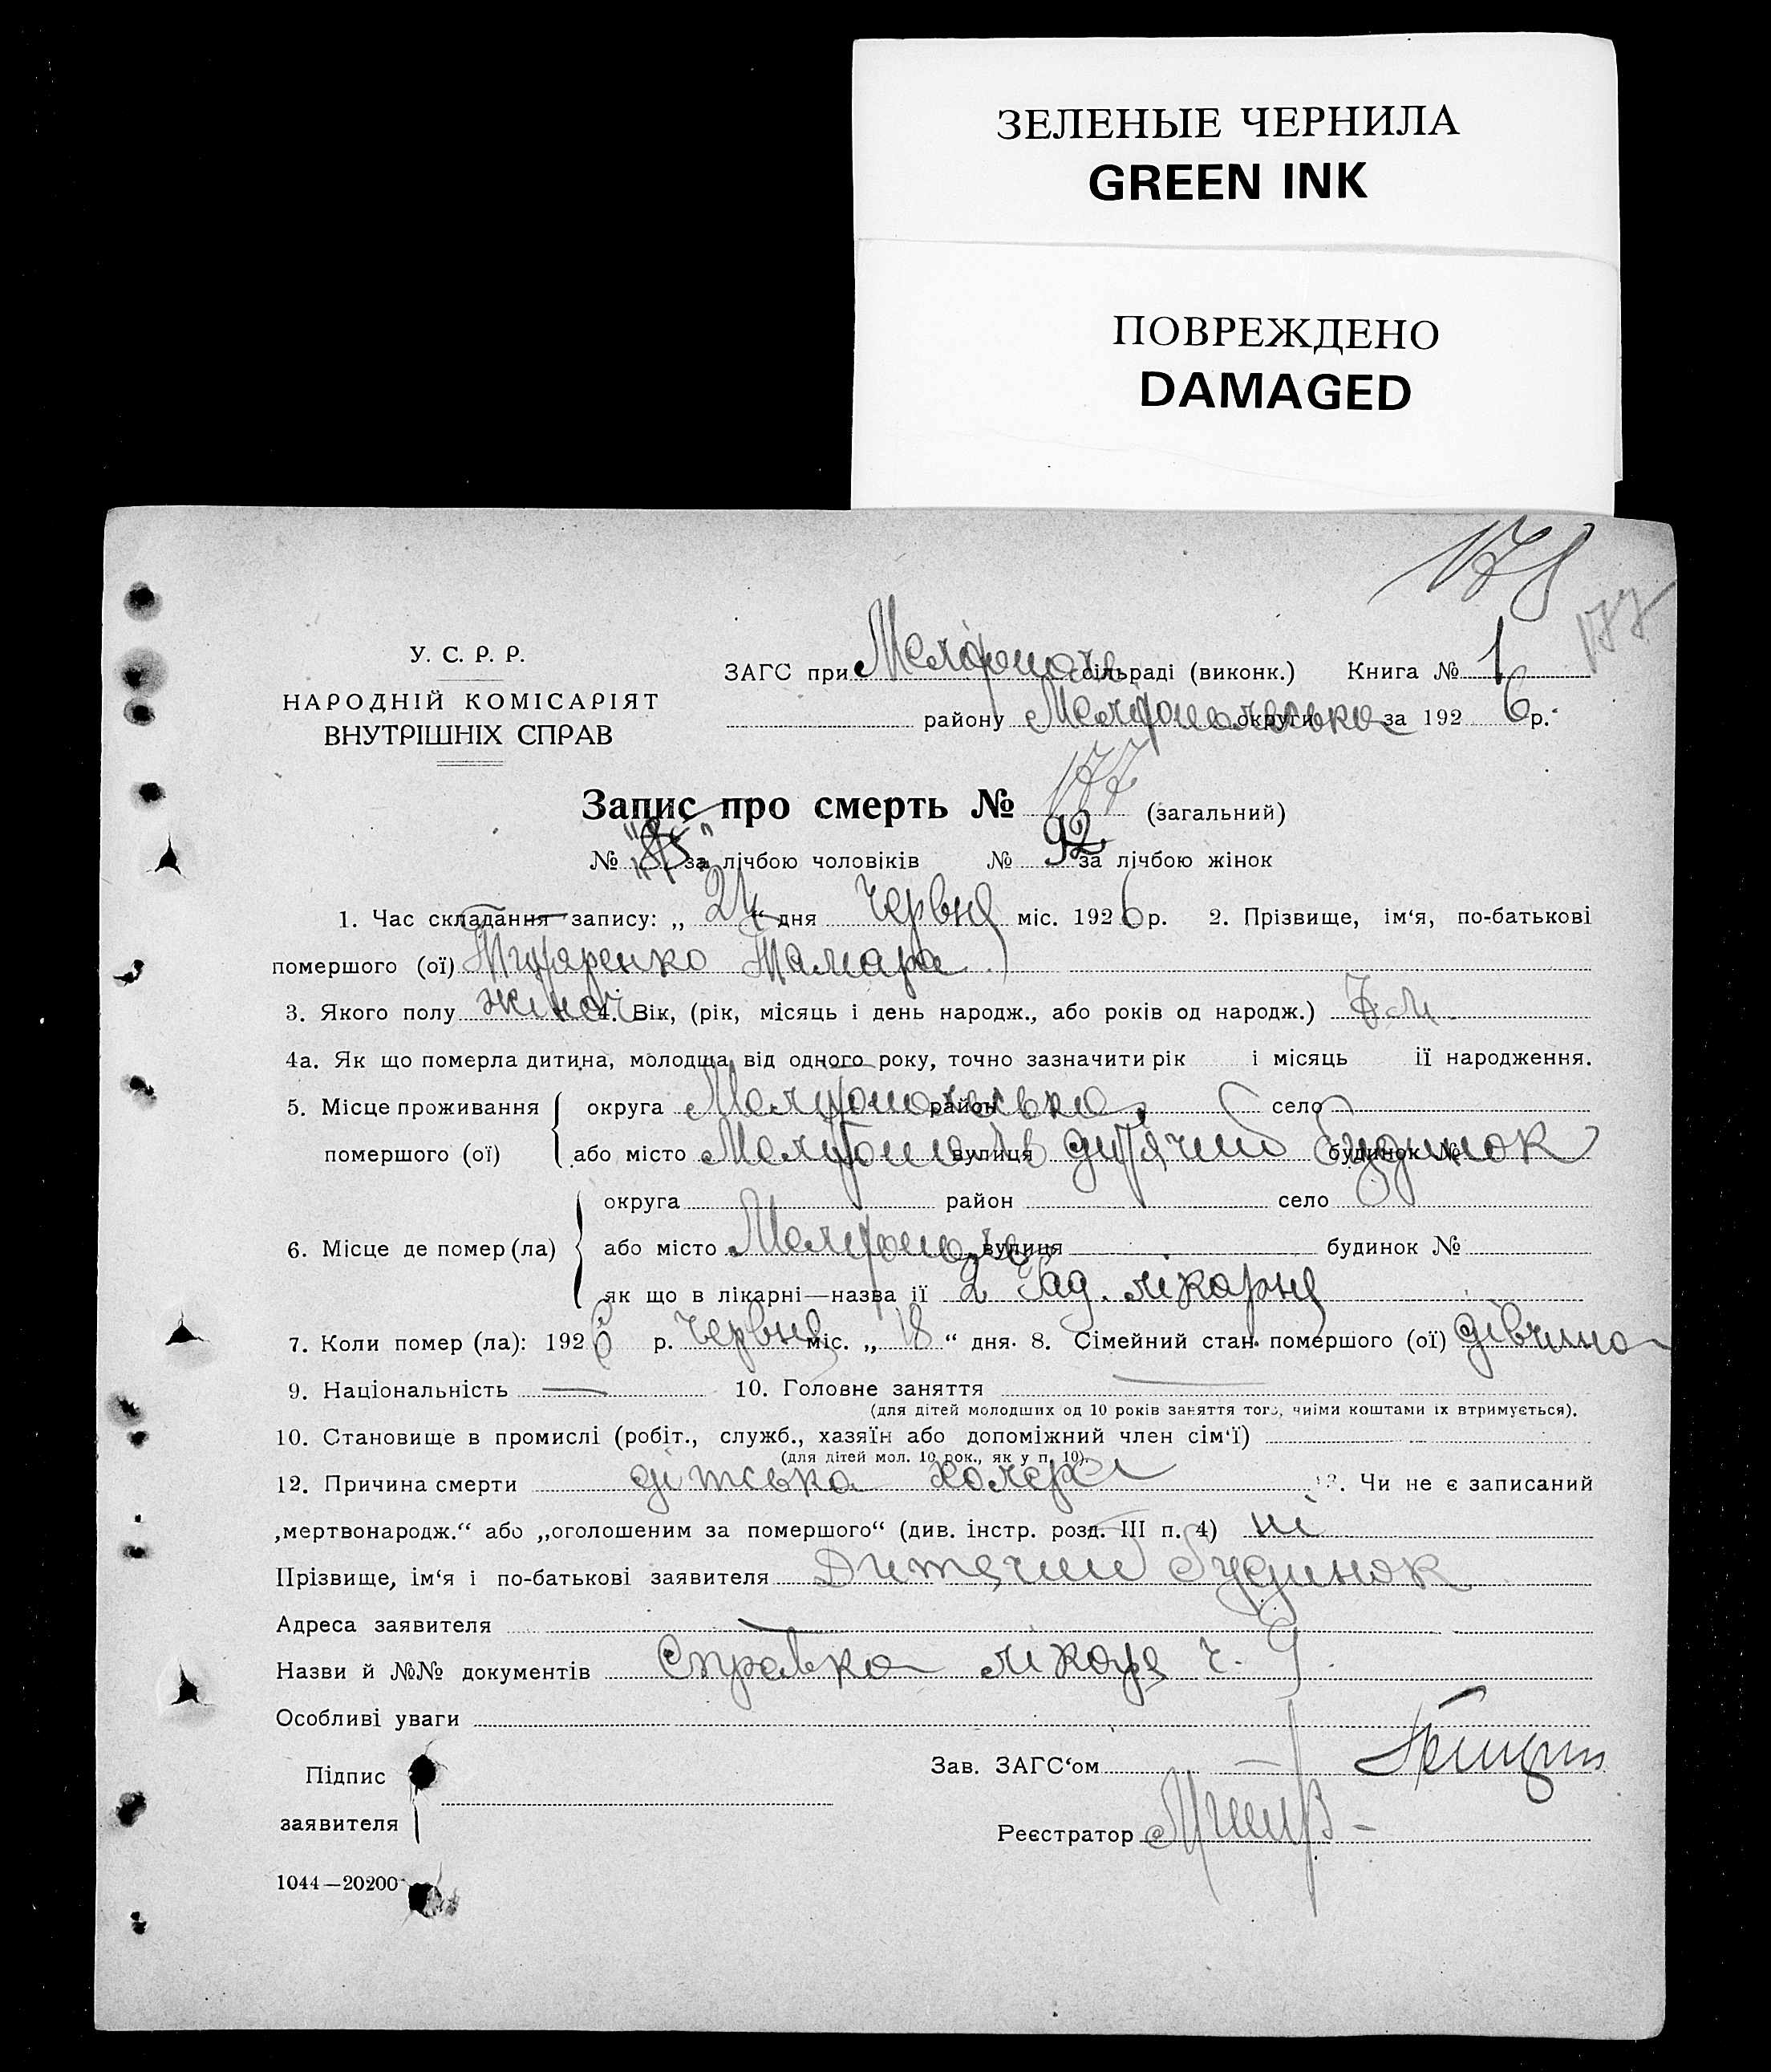 ЗЕЛЕНЫЕ ЧЕРНИЛА
GREEN INK
ПОВРЕЖДЕНО
DAMAGED
178
177
У. С. Р. Р.
НАРОДНІЙ КОМІСАРІЯТ
ВНУТРІШНІХ СПРАВ
ЗАГС при сільраді (виконк.) Книга № 1
району округи за 192 6 р.
Запис про смерть № 177 (загальний)
№ за лічбою чоловіків № 92 за лічбою жінок
1. Час складання запису: „ 24 “ дня червня міс. 192 6 р. 2. Прізвище, ім‘я, по-батькові
помершого (ої) Тамара
3. Якого полу жіноч 4. Вік, (рік, місяць і день народж., або років од народж.) 7 м.
4а. Як що померла дитина, молодща від одного року, точно зазначити рік і місяць ії народження.
5. Місце проживання помершого (ої)
округа Мелітопольська район село
або місто Мелітополь вулиця дитячий будинок будинок №
6. Місце де помер (ла)
округа район село
або місто Мелітополь вулиця будинок №
як що в лікарні—назва ії 2 Рад. лікарня
7. Коли помер (ла): 192 6 р. червня міс. „ 18 “ дня. 8. Сімейний стан помершого (ої) дівчина
9. Національність — 10. Головне заняття —
(для дітей молодших од 10 років заняття того, чиїми коштами іх втримується).
10. Становище в промислі (робіт., служб., хазяїн або допоміжний член сім‘ї)
(для дітей мол. 10 рок., як у п. 10).
12. Причина смерти дітська холера 13. Чи не є записаний
„мертвонародж.“ або „оголошеним за помершого“ (див. інстр. розд. III п. 4) ні
Прізвище, ім‘я і по-батькові заявителя Дитячий будинок
Адреса заявителя —
Назви й №№ документів Справка лікаря ч. 9.
Особливі уваги
Підпис
заявителя
Зав. ЗАГС‘ом
Реєстратор
1044—20200